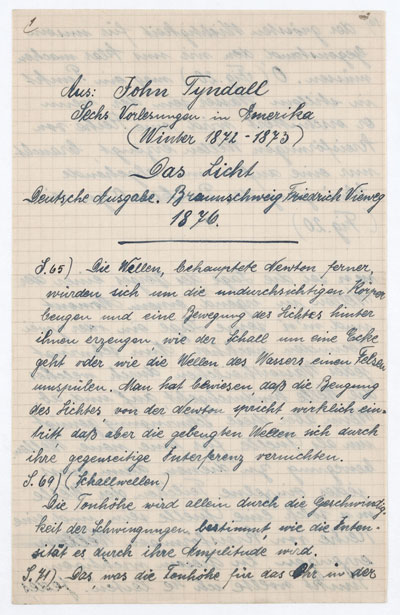 Aus: John Tyndall
Sechs Vorlesungen in Amerika
(Winter 1872-1873)
Das Licht
Deutsche Ausgabe. Braunschweig Friedrich Vieweg
1876.
S. 65) Die Wellen, behauptete Newton ferner,
würden sich um die undurchsichtigen Körper
beugen und eine Bewegung des Lichtes hinter
ihnen erzeugen, wie der Schall um eine Ecke
geht oder wie die Wellen des Wassers einen Felsen
umspülen. Man hat bewiesen daß die Beugung
des Lichtes, von der Newton spricht, wirklich ein-
tritt, daß aber die gebeugten Wellen sich durch
ihre gegenseitige Interferenz vernichten.
S. 69) (Schallwellen)
Die Tonhöhe wird allein durch die Geschwindig-
keit der Schwingungen bestimmt, wie die Inten-
sität es durch ihre Amplitude wird.
S. 71). Das, was die Tonhöhe für das Ohr in der